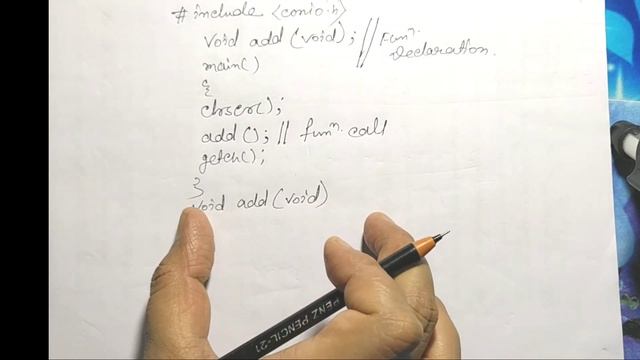 # include <conio.h>
void add (void); // Funⁿ. Declaration.
main()
{
clrscr();
add (); // funⁿ. call
getch();
}
void add (void)
PENZ PENCIL-21